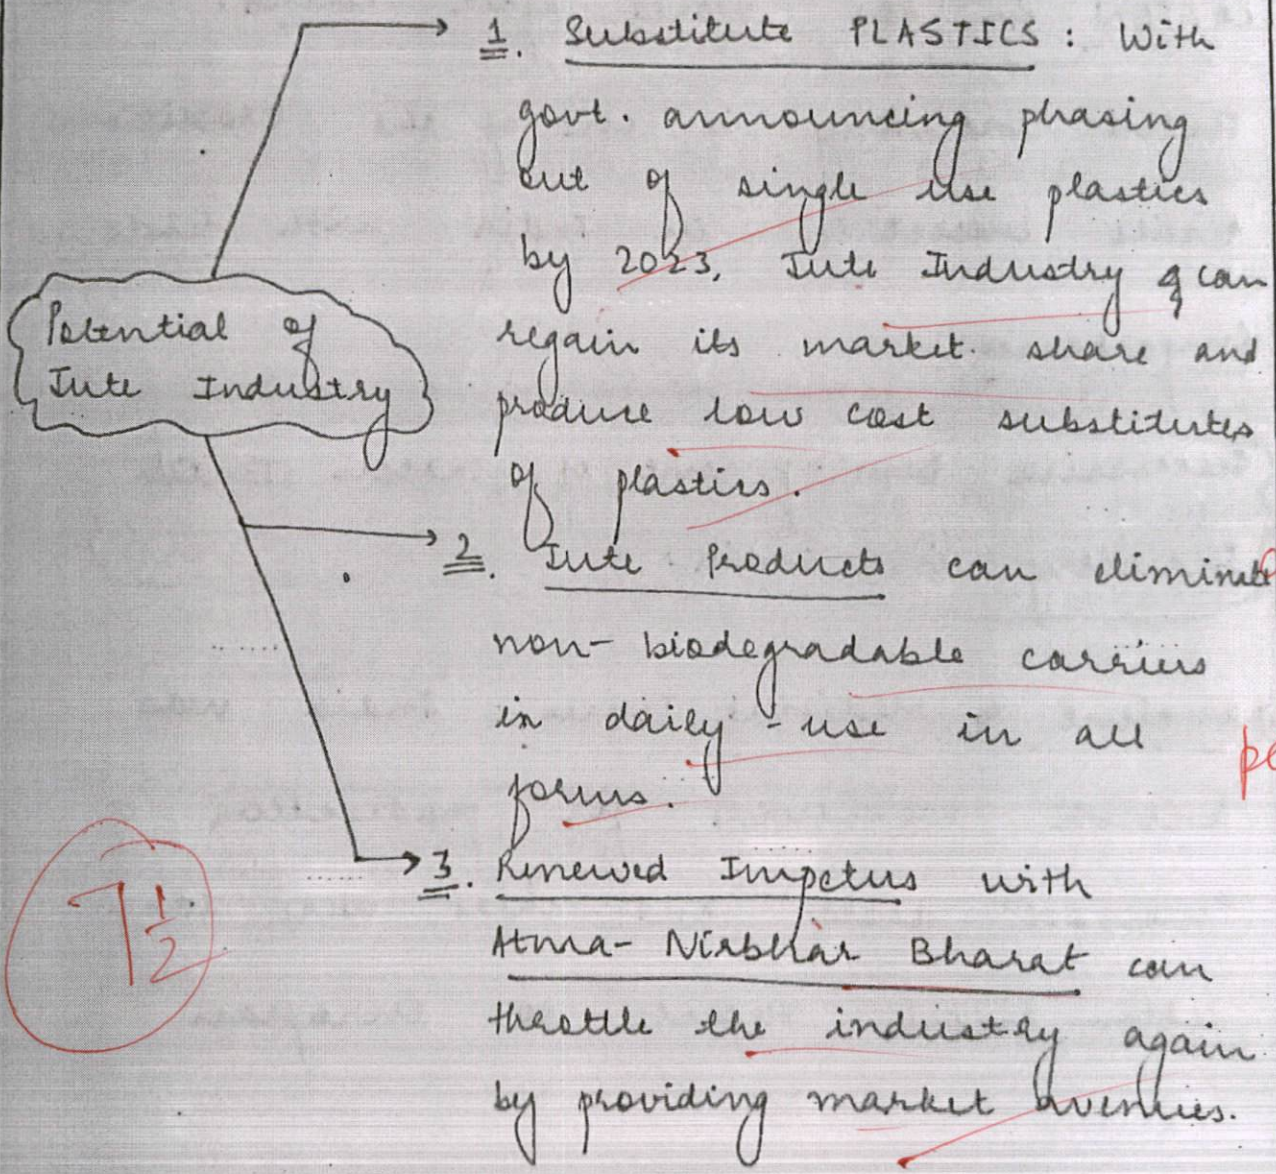 1. Substitute PLASTICS : With
govt. announcing phasing
out of single use plastics
by 2023, Jute Industry can
regain its market share and
produce low cost substitutes
of plastics.
Potential of
Jute Industry
2. Jute Products can eliminate
non-biodegradable carriers
in daily-use in all
forms.
3. Renewed Impetus with
Atma-Nirbhar Bharat can
throttle the industry again
by providing market avenues.
7 1/2